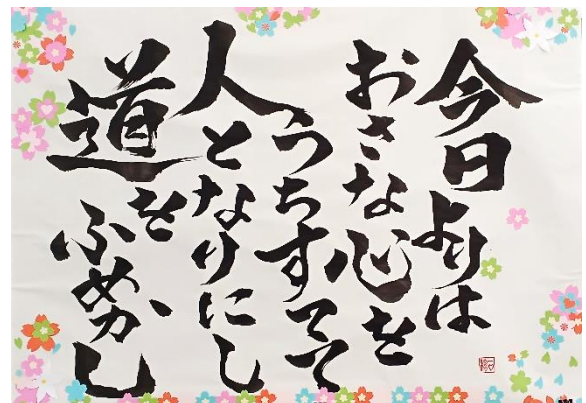 今日よりは
おさな心を
うちすてて
人となりにし
道を
ふめかし